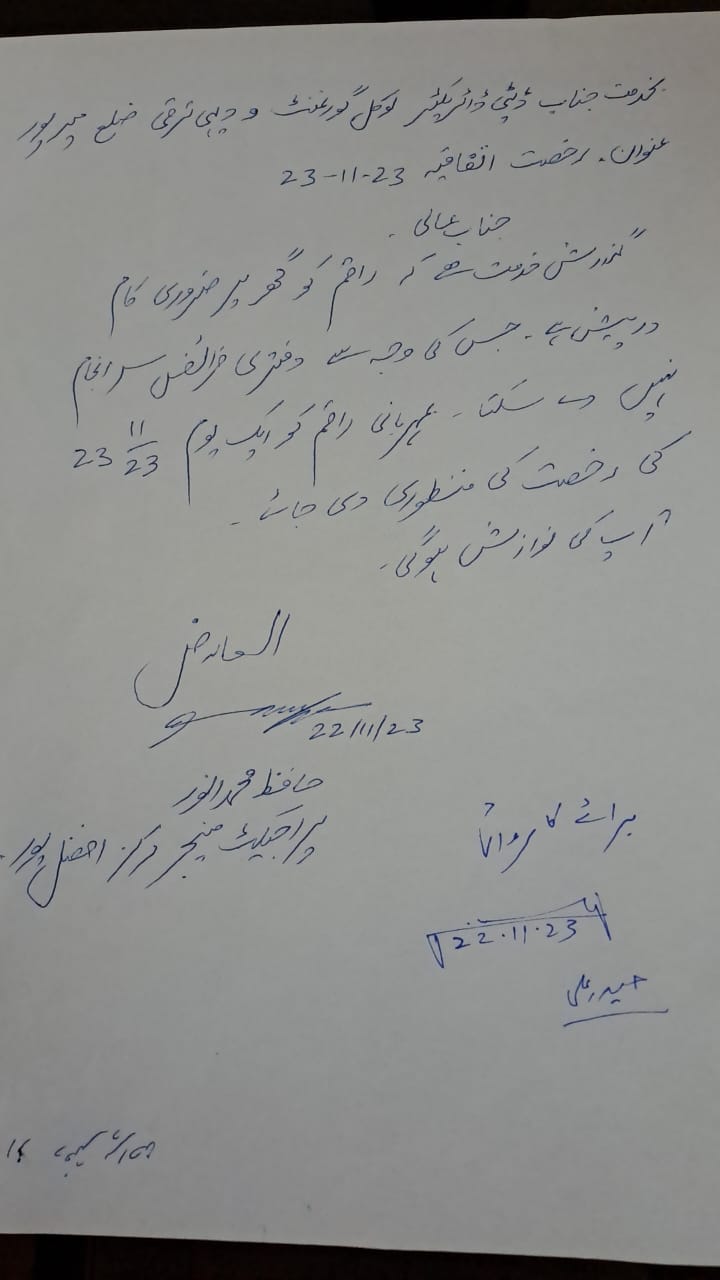 بخدمت جناب ڈپٹی ڈائریکٹر لوکل گورنمنٹ و دیہی ترقی ضلع میرپور
عنوان۔ رخصت اتفاقیہ 23-11-23
جناب عالی۔
گذارش خدمت ہے کہ راقم کو گھر پر ضروری کام
درپیش ہے۔ جس کی وجہ سے دفتری فرائض سرانجام
نہیں دے سکتا۔ مہربانی راقم کو ایک یوم 23 11/23
کی رخصت کی منظوری دی جائے۔
آپ کی نوازش ہوگی۔
العارض
22/11/23
حافظ محمد انور
پراجیکٹ منیجر مرکز افضل پور۔
برائے کاروائی
22.11.23
حیدر علی